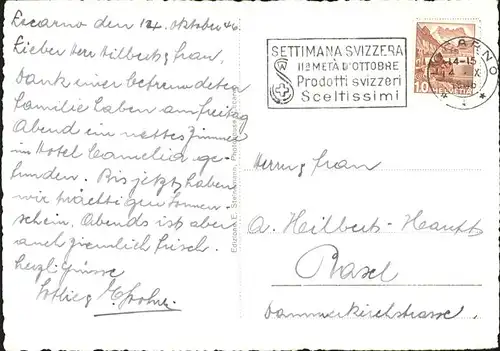 Locarno den 14. Oktober 46
Lieber Herr Hilbert u. Frau,
Dank einer befreundeten
Familie haben am Freitag
Abend ein nettes Zimmer
im Hotel Camelia ge-
funden. Bis jetzt haben
wir prächtigen Sonnen-
schein. Abends ist aber
auch ziemlich frisch.
Herzl. Grüsse
SETTIMANA SVIZZERA
IIª METÀ D'OTTOBRE
Prodotti svizzeri
Sceltissimi
10 HELVETIA
Edizioni E. Steinemann,
Herrn u. Frau
A. Hilbert-Hauff
Basel
Dammerkirchstrasse.